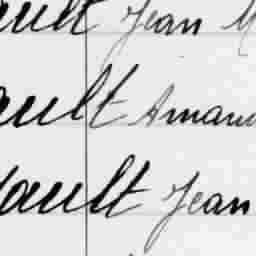 ault Jean M
ault Amand
ault Jean